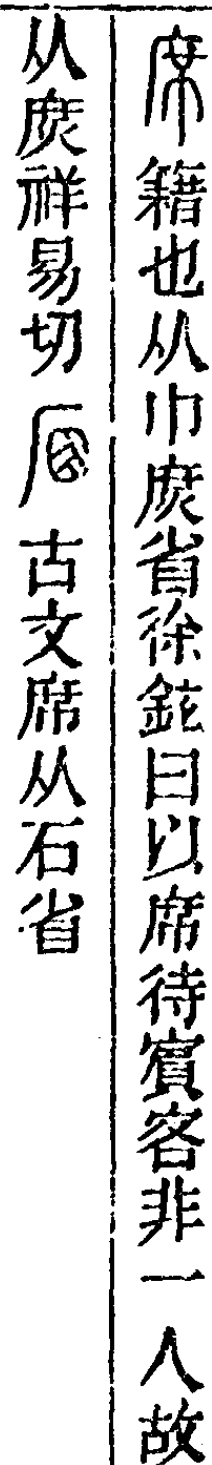 席籍也从巾庶省徐鉉曰以席待賓客非一人故
从庶祥易切𠩙古文席从石省